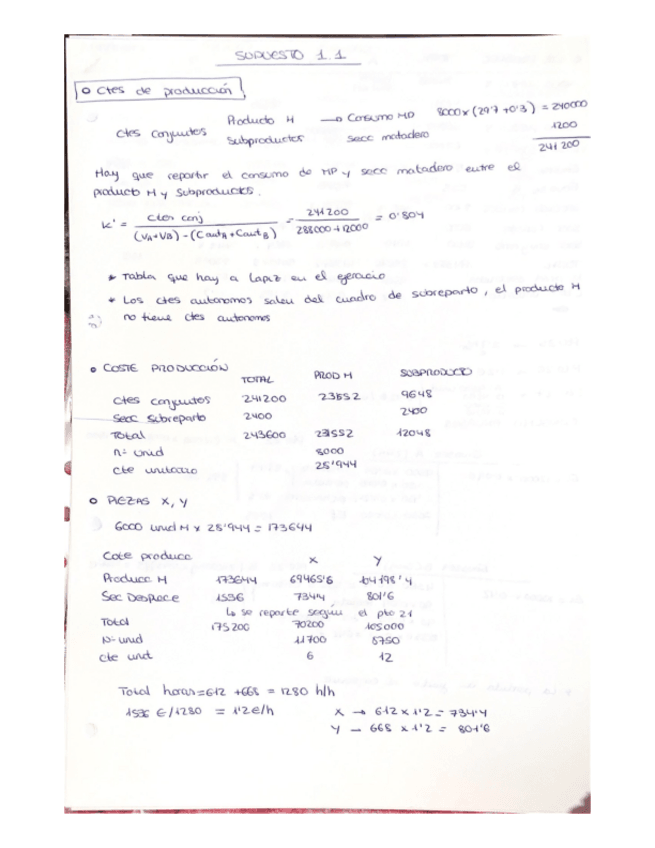 SUPUESTO 1.1
o Ctes de producción
Producto M → Consumo MP 8000 x (29'7 + 0'3) = 240000
Ctes conjuntos Subproductos secc matadero 1200
241 200
Hay que repartir el consumo de MP y secc matadero entre el
producto M y subproductos.
K' = ctes conj / (VA+VB) - (CautA + CautB) = 241200 / 288000 + 12000 = 0'804
* Tabla que hay a lapiz en el ejercicio
* Los ctes autonomos salen del cuadro de subreparto, el producto M
no tiene ctes autonomos
o COSTE PRODUCCIÓN
TOTAL PROD M SUBPRODUCTO
Ctes conjuntos 241200 231552 9648
Secc Subreparto 2400 2400
Total 243600 231552 12048
nº unid 8000
cte unitario 28'944
o PIEZAS X, Y
6000 unid M x 28'944 = 173644
Cote producc X Y
Producc M 173644 69465'6 104198'4
Sec Despiece 1536 734'4 801'6
↳ se reparte según el pto 21
Total 175200 70200 105000
nº unid 11700 8750
cte unit 6 12
Total horas = 612 + 668 = 1280 h/h
1536 €/1280 = 1'2 €/h X → 612 x 1'2 = 734'4
Y – 668 x 1'2 = 801'6